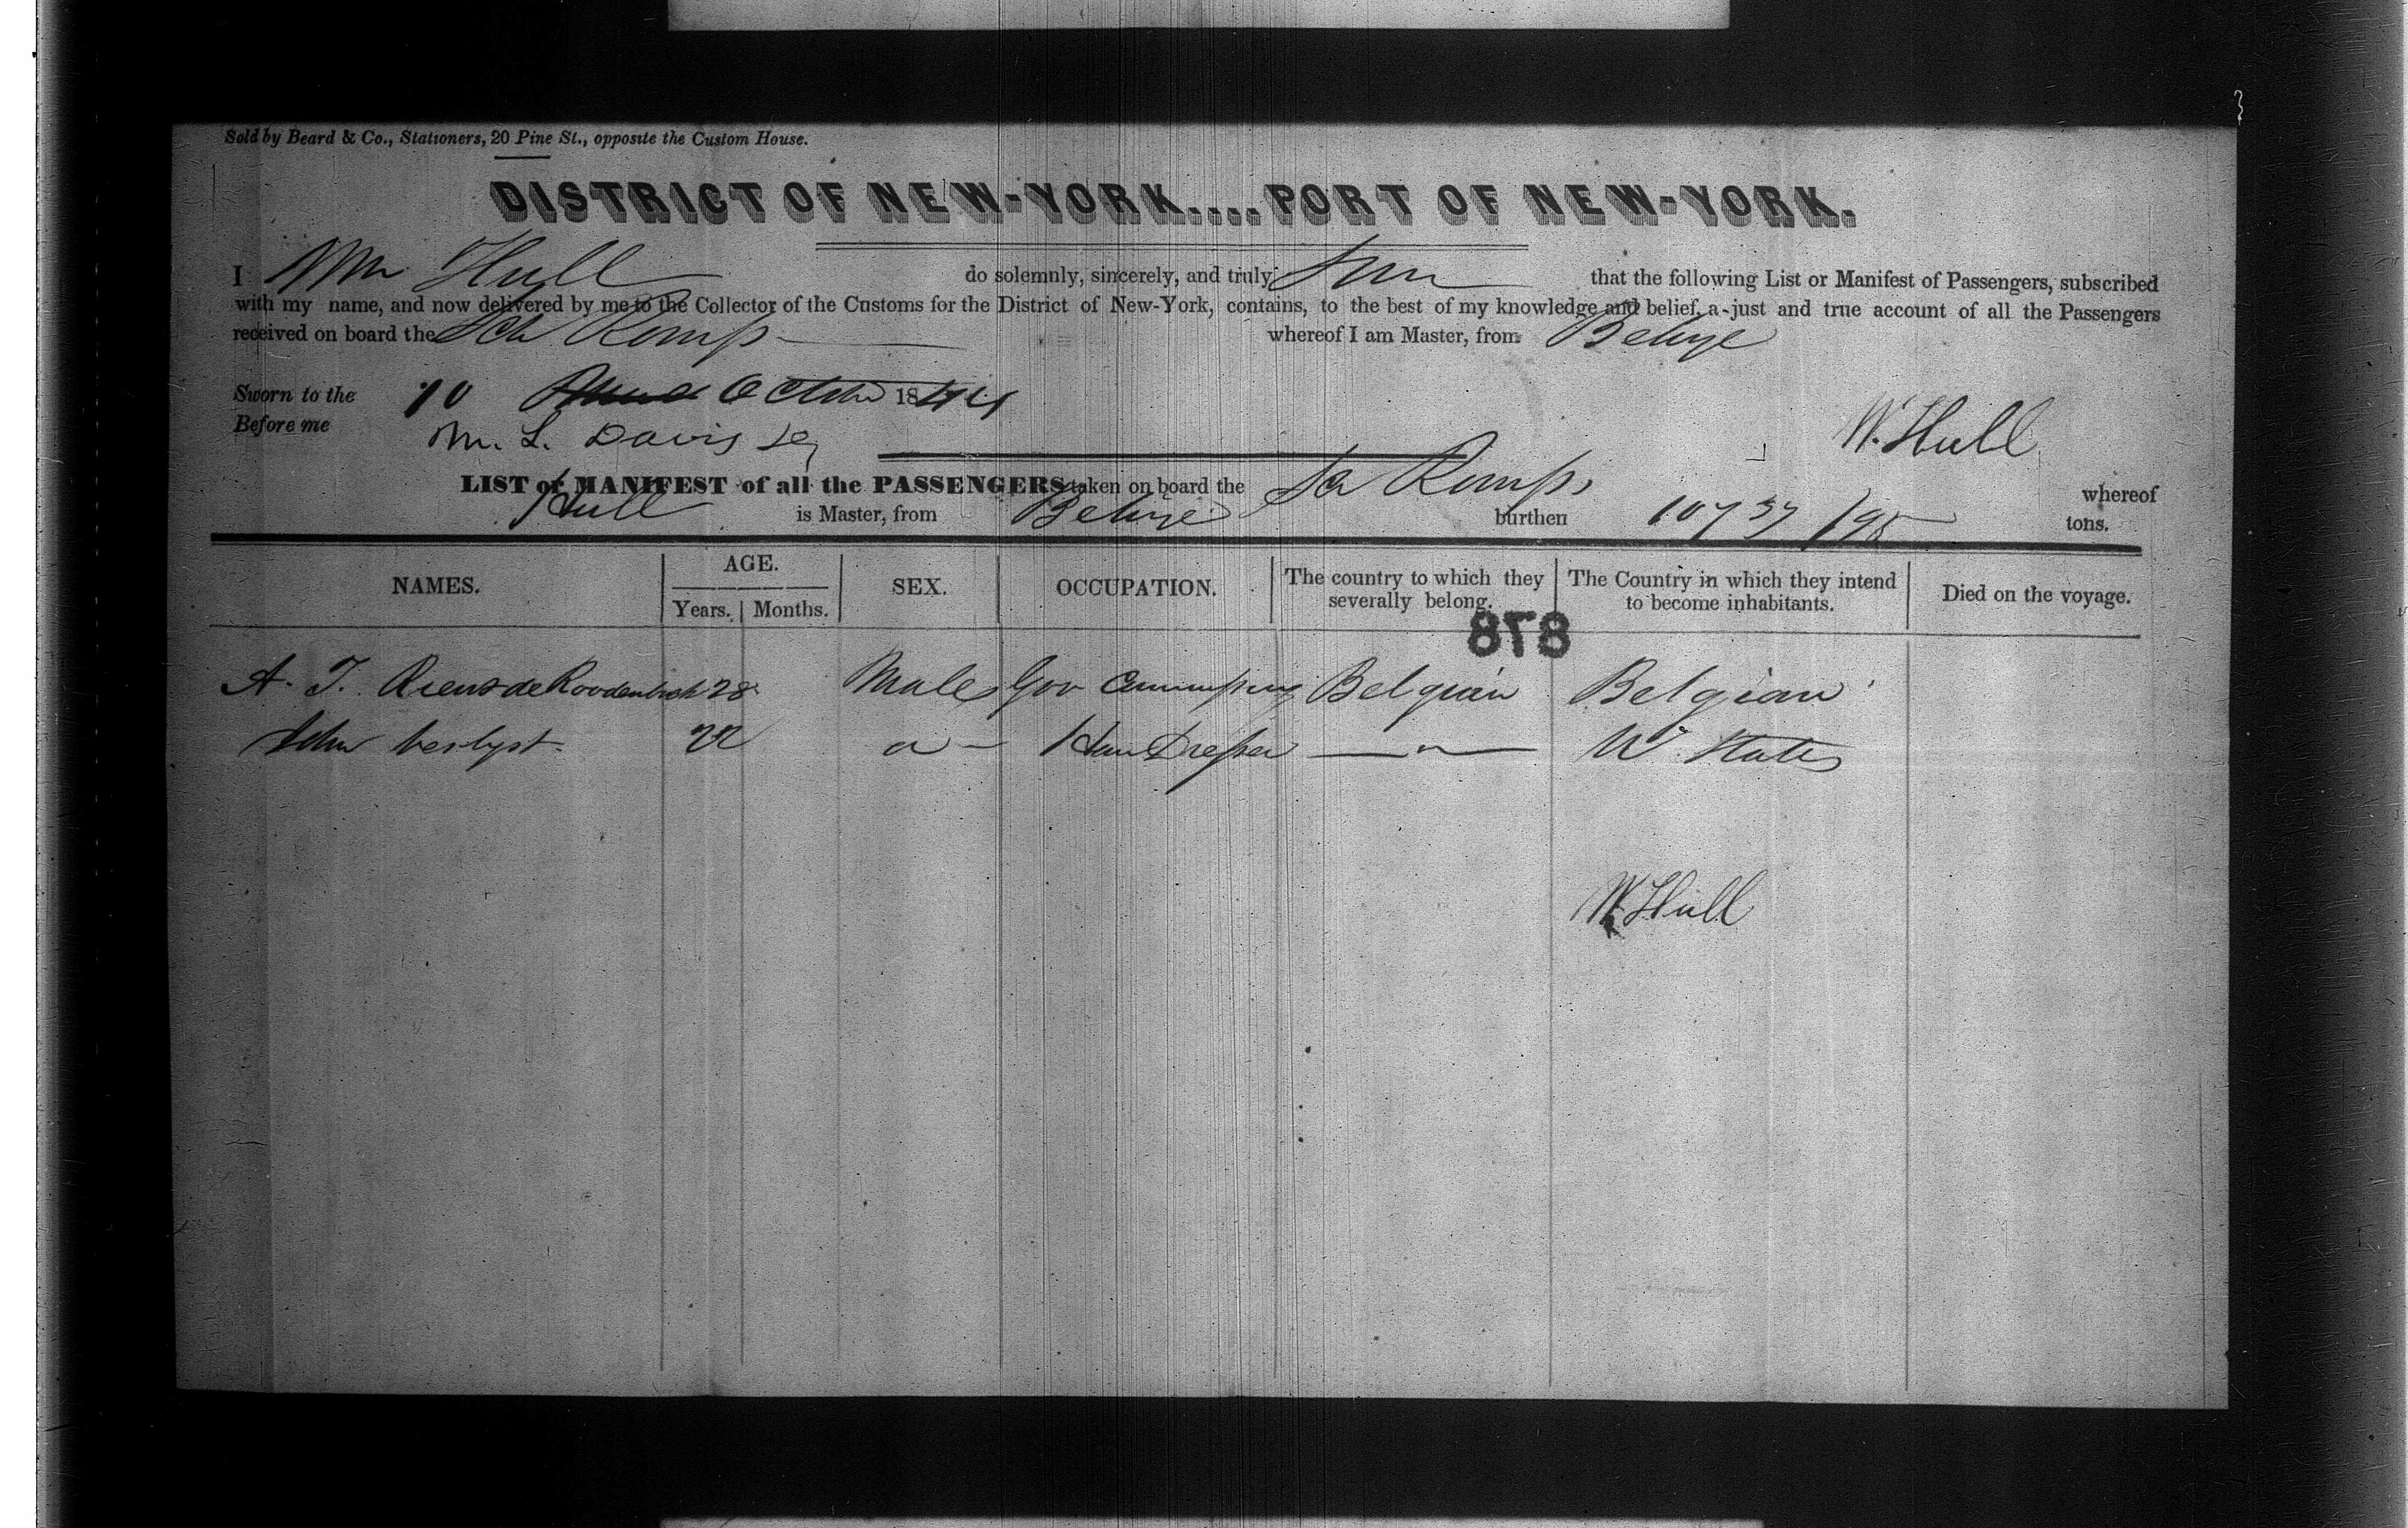 Sold by Beard & Co., Stationers, 20 Pine St., opposite the Custom House.
DISTRICT OF NEW-YORK....PORT OF NEW-YORK.
I Wm Hull do solemnly, sincerely, and truly that the following List or Manifest of Passengers, subscribed
with my name, and now delivered by me to the Collector of the Customs for the District of New-York, contains, to the best of my knowledge and belief, a just and true account of all the Passengers
received on board the Sch whereof I am Master, from Belize
Sworn to the 10 October 1844
Before me M. L. Davis
W. Hull
LIST or MANIFEST of all the PASSENGERS taken on board the whereof
Hull is Master, from Belize burthen 107 37/95 tons.
NAMES. AGE. SEX. OCCUPATION. The country to which they severally belong. The Country in which they intend to become inhabitants. Died on the voyage.
Years. Months.
878
A. T. de 28 Male Gov Belgian Belgian
John 22 Hair Dresser U. States
W. Hull